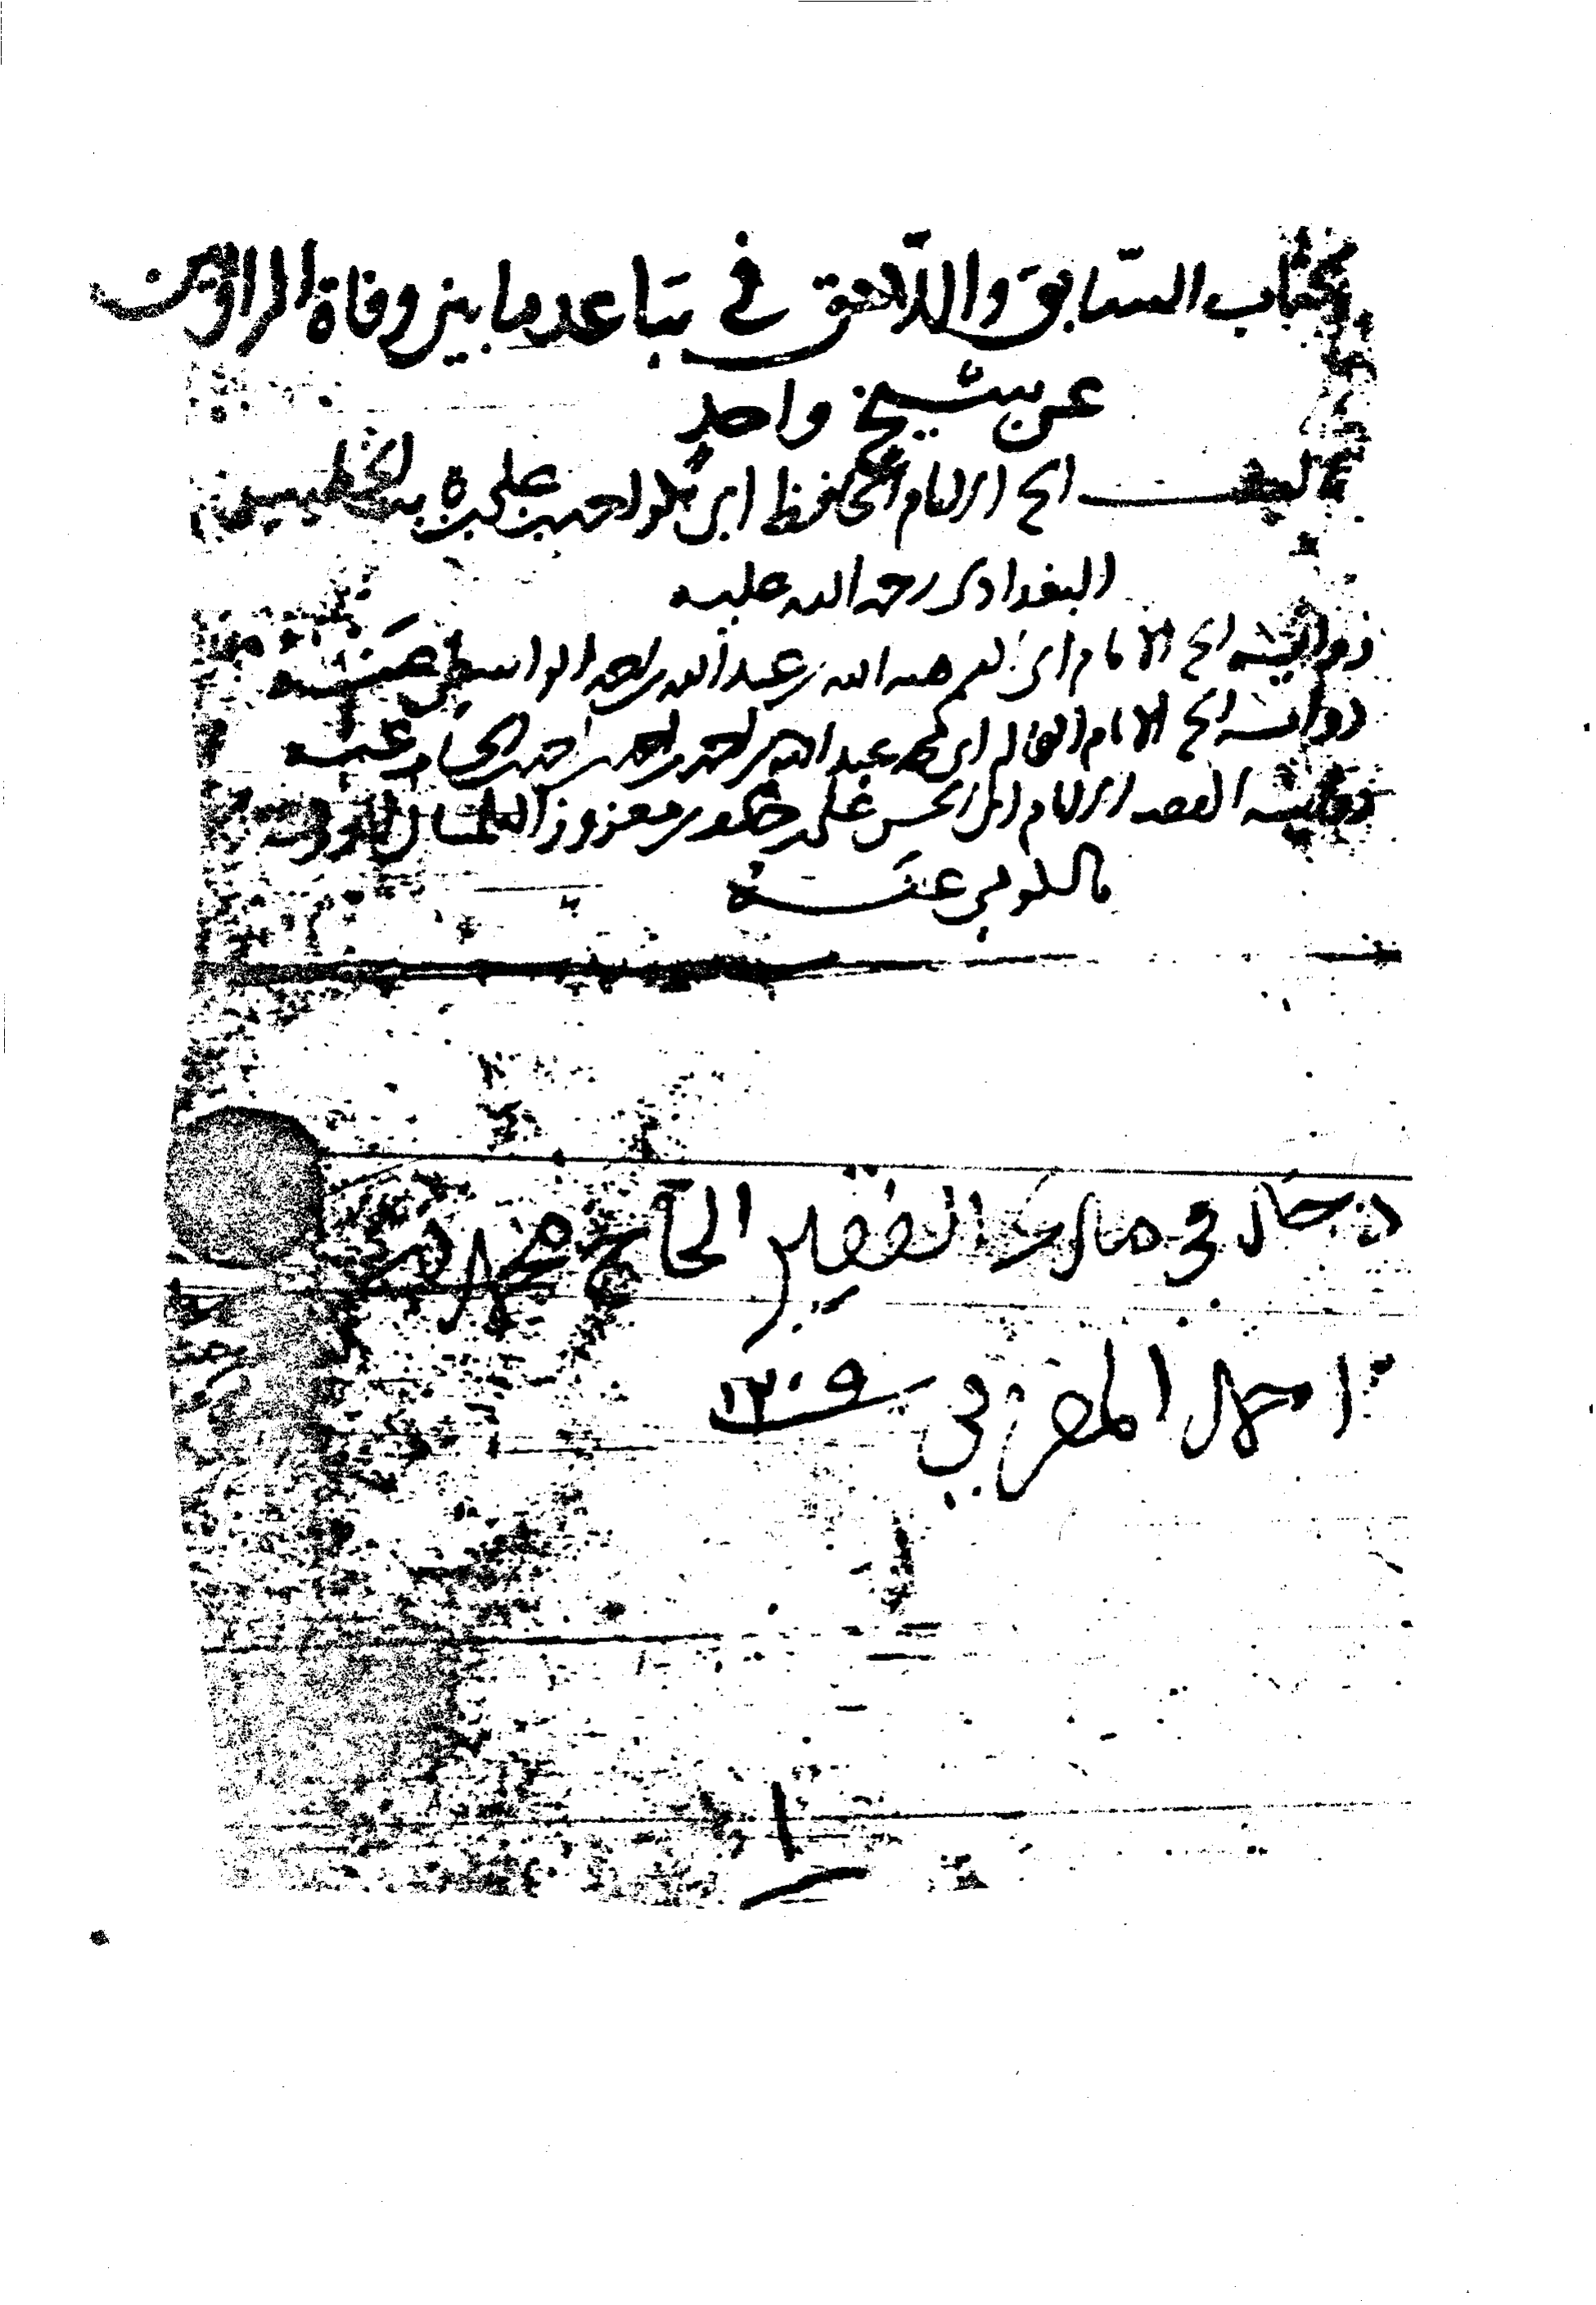 كتاب السّابق واللّاحق في تباعد ما بين وفاة الراويين
عن شيخ واحدٍ
تاليف الامام الحافظ ابي بكر احمد بن علي بن ثابت الخطيب
البغدادي رحمة الله عليه
رواية الامام ابي هبة الله بن عبد الله بن احمد الواسطي عنه
رواية الامام العالم ابي محمد عبد الله بن احمد بن احمد بن احمد عنه
رواية الفقيه الامام ابي الحسن علي بن معزوز
عنه
دخل في ملك الفقير الحاج محمد
احمد المغربي ١٣٠٩